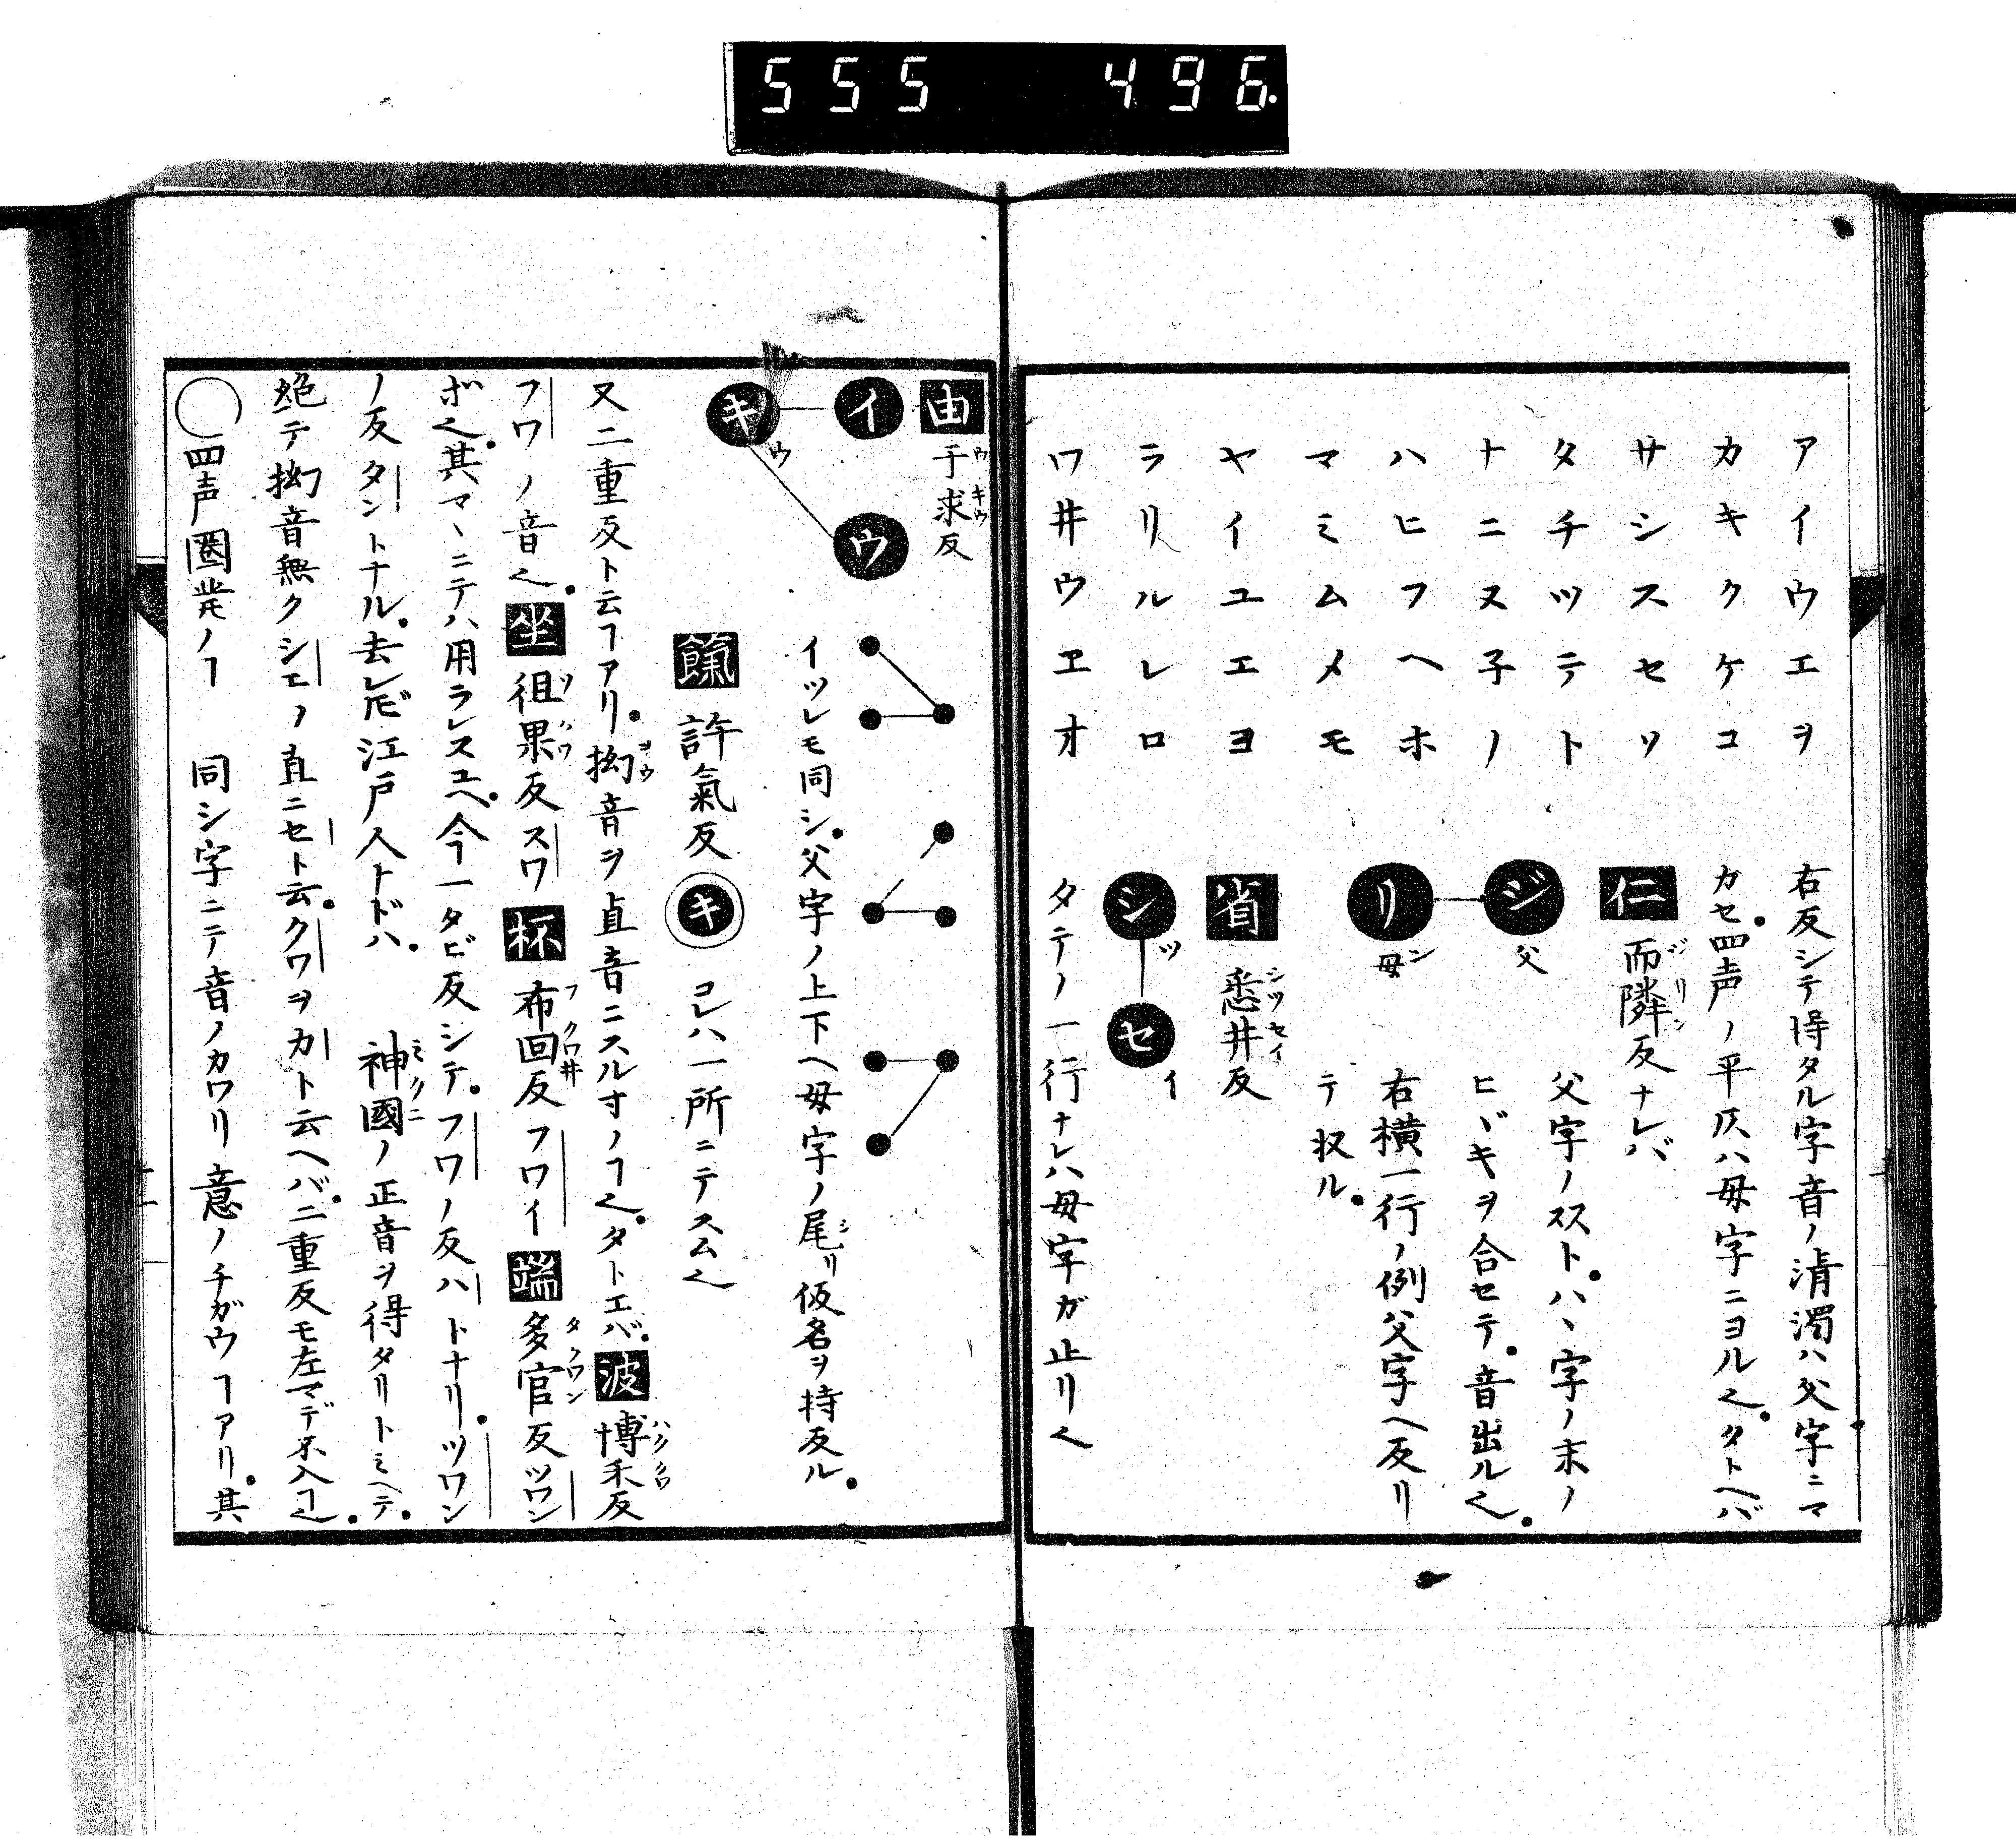 555 496.
アイウエヲ
カキクケコ
サシスセソ
タチツテト
ナニヌ子ノ
ハヒフヘホ
マミムメモ
ヤイユエヨ
ラリルレロ
ワ井ウヱオ
右反シテ得タル字音ノ清濁ハ父字ニマ
カセ四声ノ平仄ハ母字ニヨル也タトヘバ
仁 而隣反ナレバ
ジリン
ジ 父
リ ン 母
父字ノスストハヽ字ノ末ノ
ヒヾキヲ合セテ音出ル也
右横一行ノ例父字ヘ反リ
テ収ル
省 悉井反
シツセイ
シ ツ
セ イ
タテノ一行ナレハ母字ガ止リ也
由 于求反
ウキウ
イ
キ ウ
ウ
イツレモ同シ父字ノ上下ヘ母字ノ尾リ仮名ヲ持反ル
シ
餼 許氣反 キ コレハ一所ニテスム也
又二重反ト云ヿアリ拗音ヲ直音ニスル寸ノヿ也タトエバ波 博禾反
ヨウ ハククワ
フワノ音也坐 徂果反スワ 杯 布回反フワイ 端 多官反ツワン
ソクワ フクワ井 タクワン
ボ也其マヽニテハ用ラレスユヘ今一タビ反シテフワノ反ハトナリツワン
ノ反タントナル去レ𪜈江戸人トドハ 神國ノ正音ヲ得タリトミヘテ
ミクニ
絶テ拗音無クシエノ直ニセト云クワヲカト云ヘバ二重反モ左マデ不入ヿ也
○四声圏発ノヿ 同シ字ニテ音ノカワリ意ノチガウヿアリ其